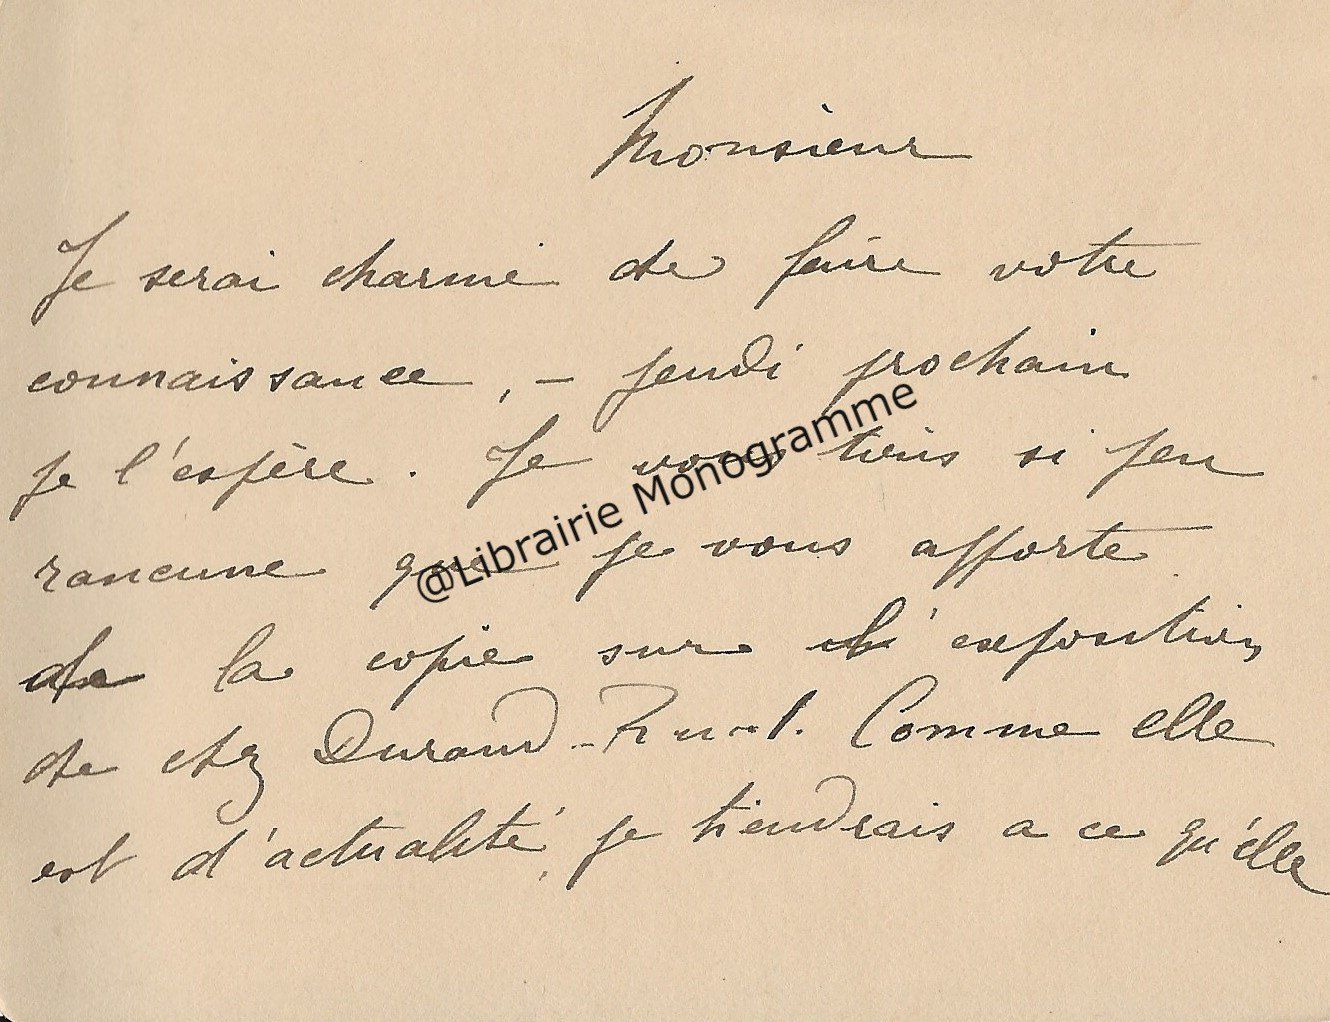 Monsieur
Je serai charmé de faire votre
connaissance, – jeudi prochain
je l'espère. Je vous tiens si peu
rancune que je vous apporte
de la copie sur l'exposition
de chez Durand-Ruel. Comme elle
est d'actualité, je tiendrais a ce qu'elle
@Librairie Monogramme